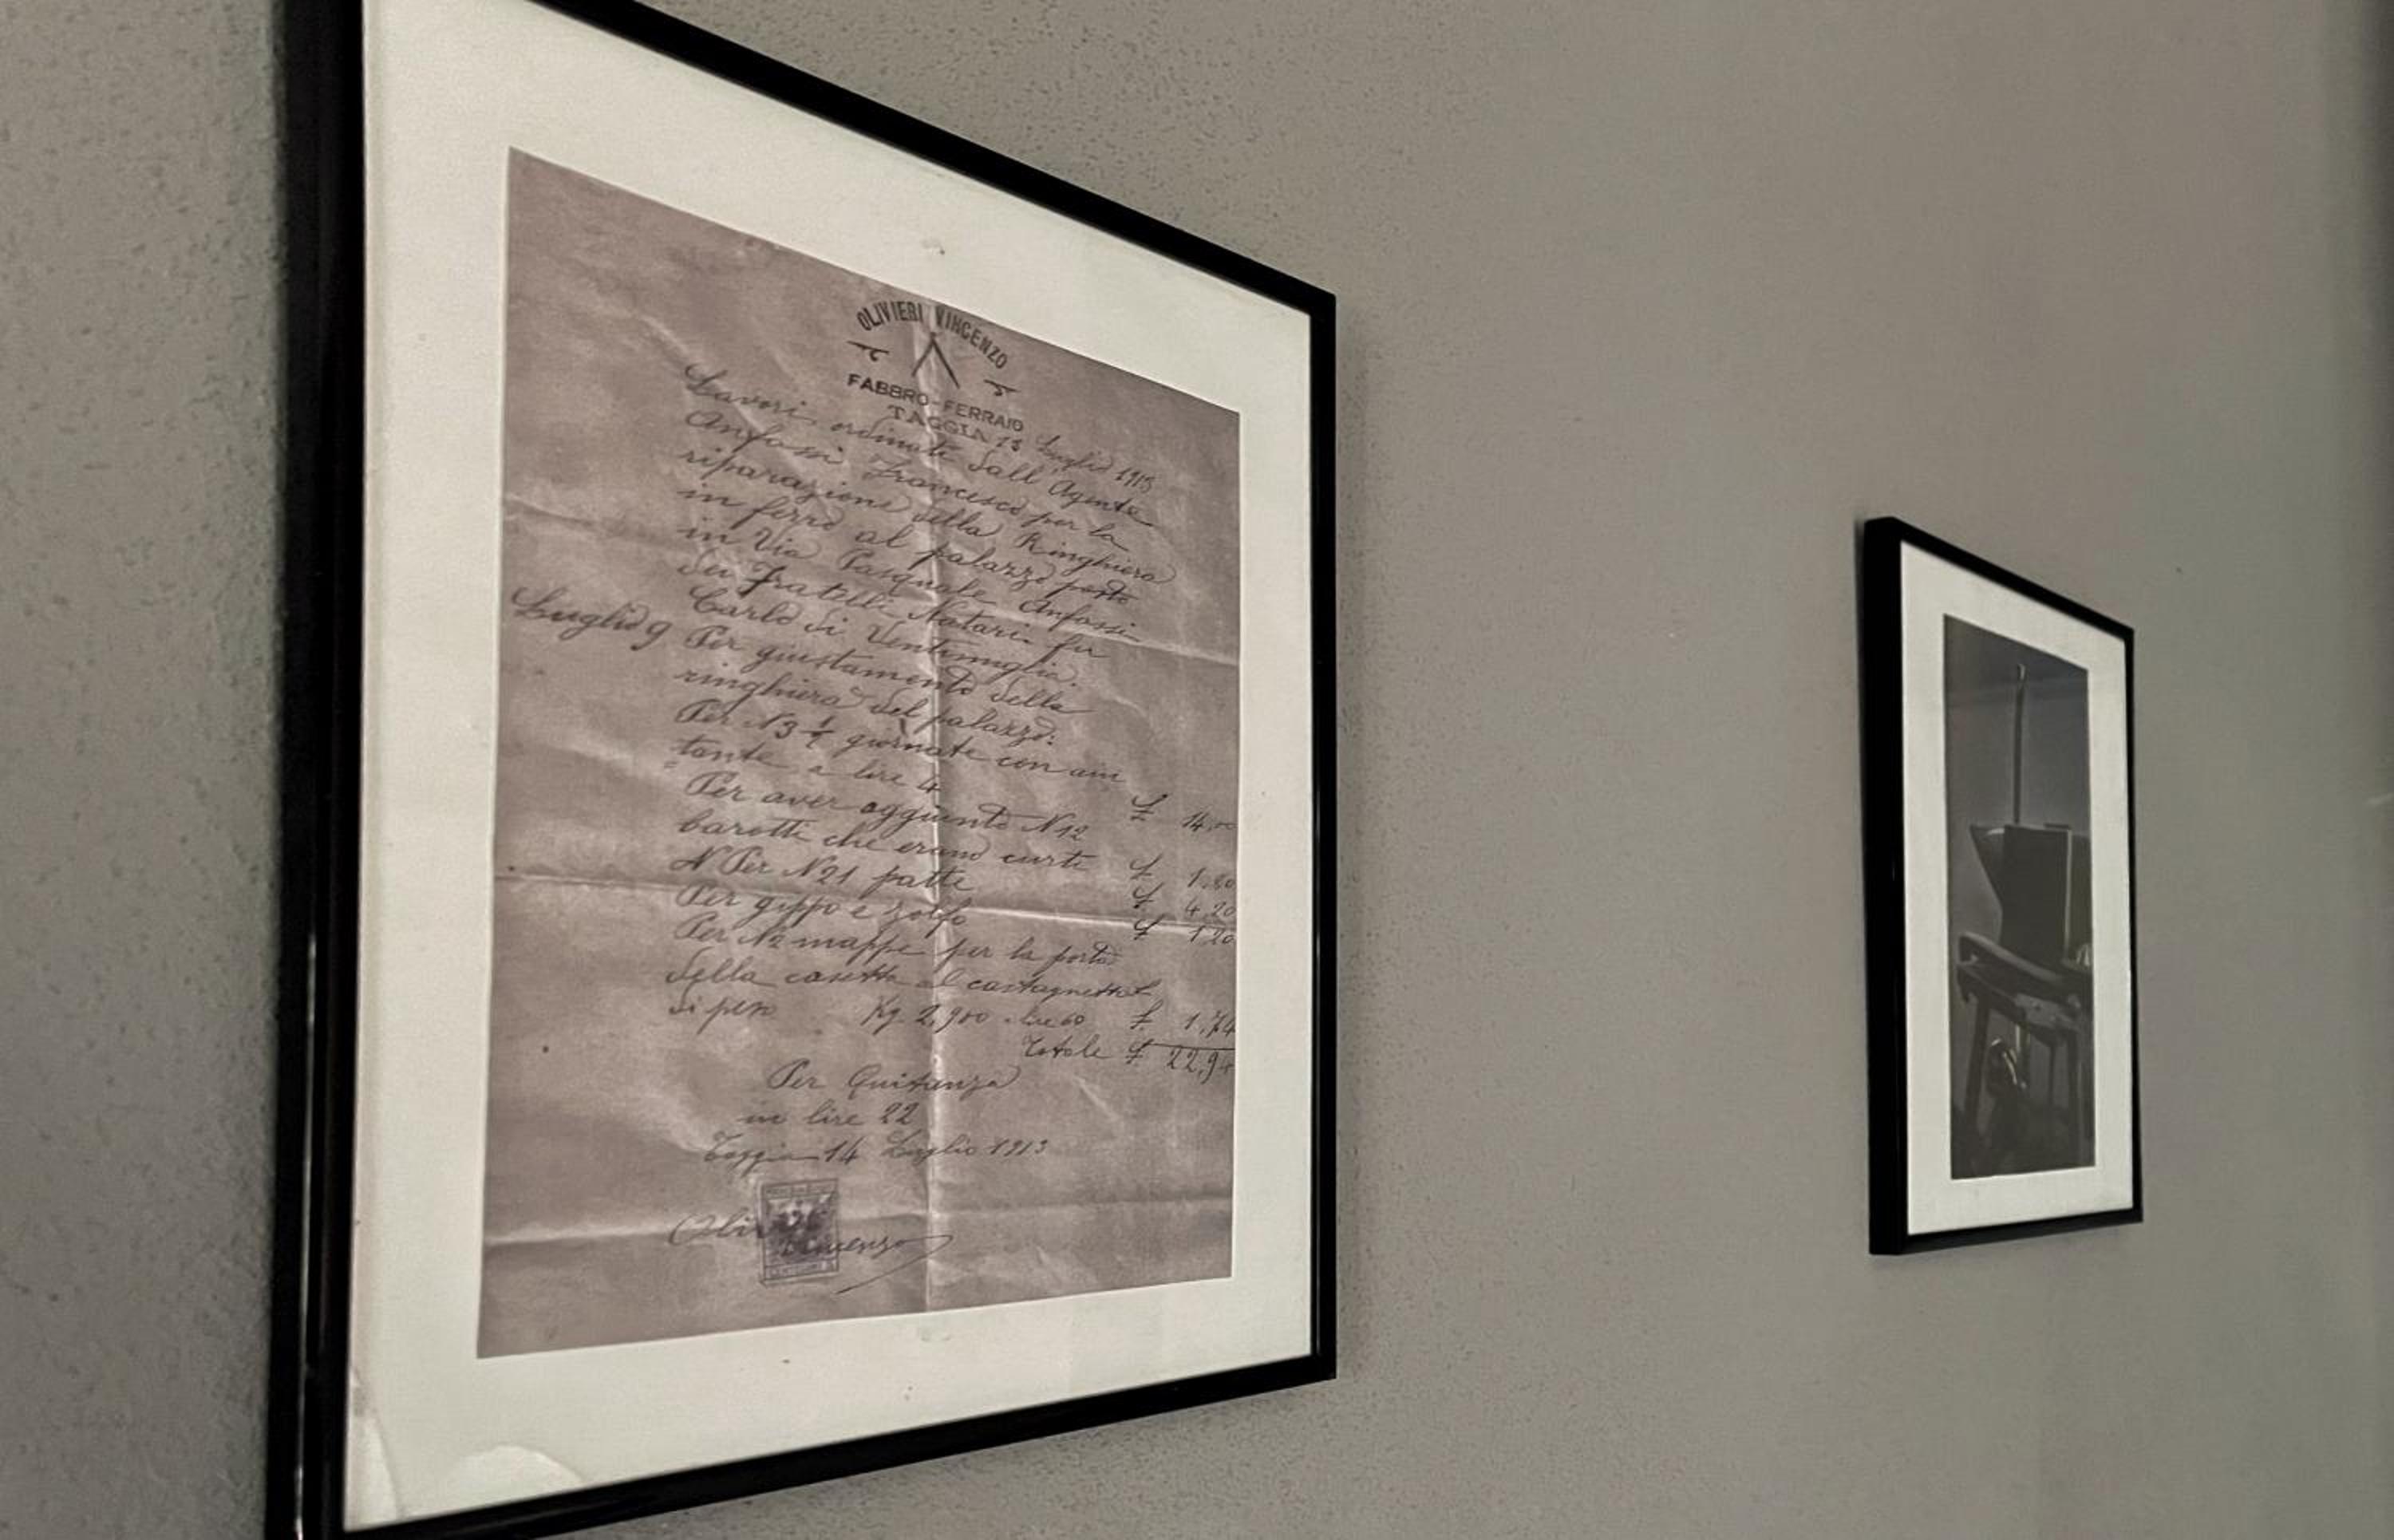 OLIVIERI VINCENZO
FABBRO-FERRAIO
TAGGIA 13 Luglio 1913
Lavori ordinati dall'Agente
Anfossi Francesco per la
riparazione della Ringhiera
in ferro al palazzo posto
in Via Pasquale Anfossi
dei Fratelli Notari fu
Carlo di Ventimiglia.
Luglio 9 Per giustamento della
ringhiera del palazzo:
Per N 3 ½ giornate con aiu
tante a lire 4 £ 14,00
Per aver aggiunto N 12
barotti che erano curti £ 1,80
Per N 21 patte £ 4,20
Per gippo e zolfo £ 1,20
Per N2 mappe per la porta
della casetta al castagnetto
di peso Kg 2,900 60 £ 1,74
Totale £ 22,94
Per Quitanza
in lire 22
Taggia 14 Luglio 1913
Vincenzo